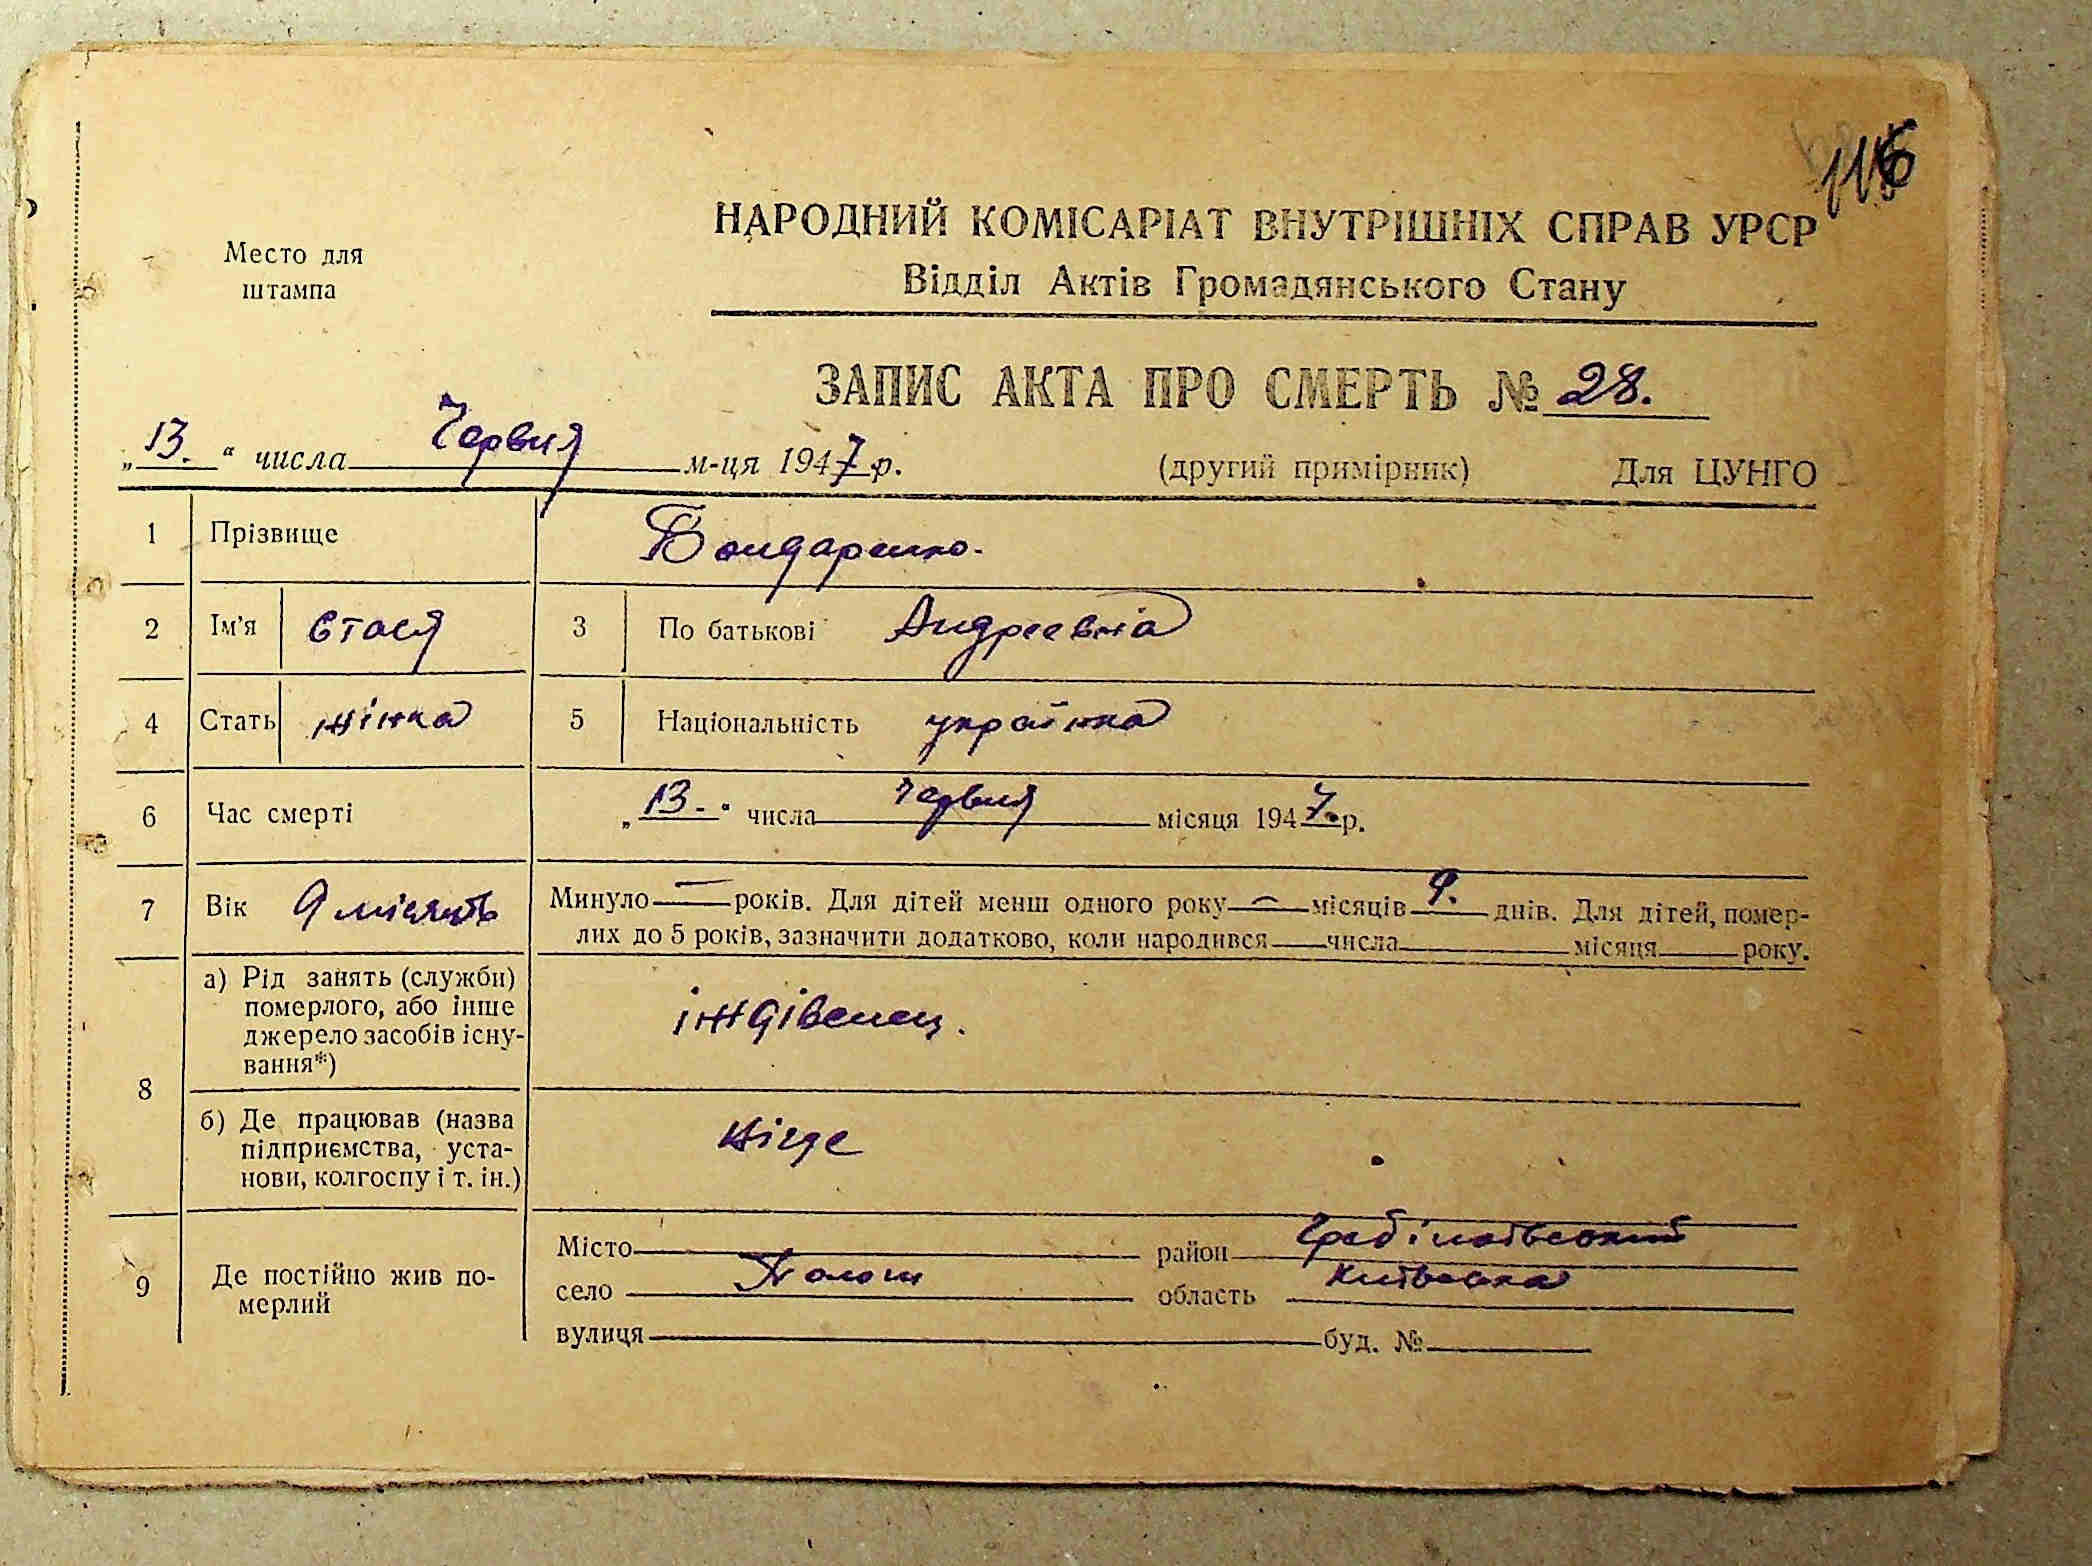 116
НАРОДНИЙ КОМІСАРІАТ ВНУТРІШНІХ СПРАВ УРСР
Место для штампа
Відділ Актів Громадянського Стану
ЗАПИС АКТА ПРО СМЕРТЬ № 28.
„13.“ числа Червня м-ця 1947 р. (другий примірник) Для ЦУНГО
1 Прізвище Бондаренко.
2 Ім'я Стася 3 По батькові Андреевна
4 Стать жінка 5 Національність українка
6 Час смерті „13.“ числа червня місяця 1947 р.
7 Вік 9 місяців Минуло — років. Для дітей менш одного року — місяців 9. днів. Для дітей, помер-
лих до 5 років, зазначити додатково, коли народився числа місяця року.
8 а) Рід занять (служби)
померлого, або інше
джерело засобів існу-
вання*) іждівенец.
б) Де працював (назва
підприємства, уста-
нови, колгоспу і т. ін.) нігде
9 Де постійно жив по-
мерлий
Місто район
село область Київська
вулиця буд. №